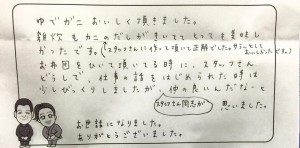 ゆでガニ おいしく頂きました。
雑炊 もカニのだしがきいてて とても美味し
かったです。(スタッフさんに作って頂いて正解でした。サラーとして
おいしかったです。)
お布団をひいて頂いてる時に、スタッフさん
どうしで、仕事の話をはじめられた時は
少しびっくりしましたが 仲の良いんだな〜と
スタッフさん同志が
思いました。
お世話になりました。
ありがとうございました。